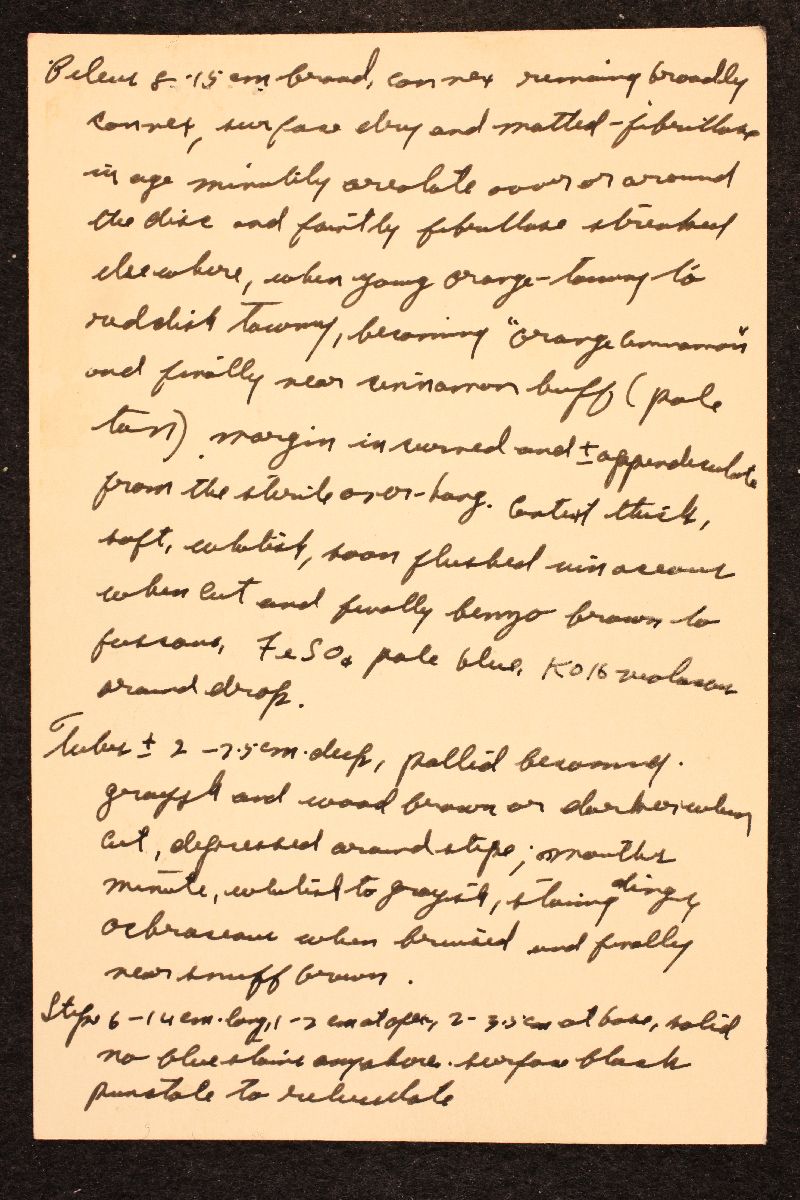 Pileus 8-15 cm broad, convex remaining broadly
convex, surface dry and matted-fibrillose
in age minutely areolate over or around
the disc and faintly fibrillose streaked
elsewhere, when young orange-tawny to
reddish tawny, becoming "orange cinnamon"
and finally near cinnamon buff (pale
tan). margin incurved and ± appendiculate
from the sterile over-hang. Context thick,
soft, whitish, soon flushed vinaceous
when cut and finally benzo brown to
fuscous, FeSO4 pale blue, KOH
around drop.
Tubes ± 2 -2.5 cm. deep, pallid becoming
grayish and wood brown or darker when
cut, depressed around stipe; mouths
minute, whitish to grayish, staining dingy
ochraceous when bruised and finally
near snuff brown.
Stipe 6-14 cm. long, 1-2 cm at apex, 2-3.5 cm at base, solid
no blue stains anywhere. surface black
punctate to